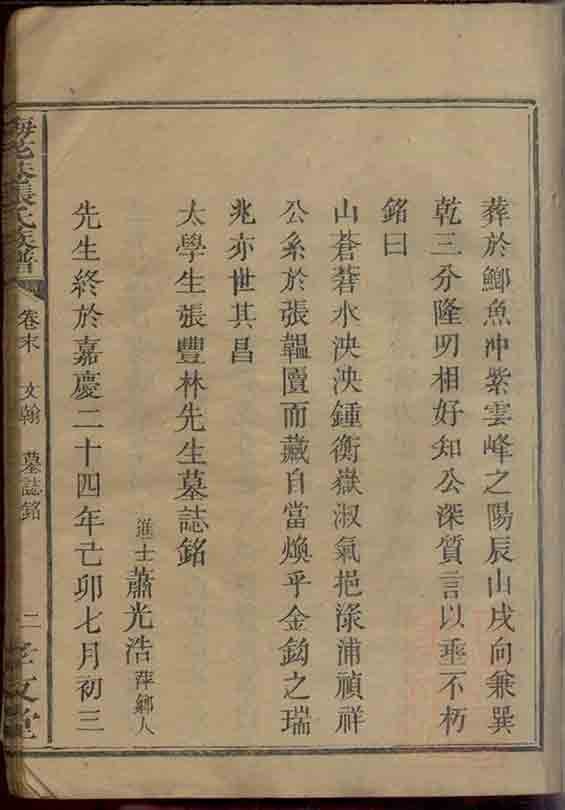 葬於鯽魚冲紫雲峰之陽辰山戌向兼巽
乾三分隆明相好知公深質言以垂不朽
銘曰
山蒼莽水泱泱鍾衡嶽淑氣挹淥浦禎祥
公系於張韞匵而藏自當煥乎金鈎之瑞
兆亦世其昌
太學生張豐林先生墓誌銘
進士蕭光浩萍鄉人
先生終於嘉慶二十四年己卯七月初三
張氏族譜 卷末 文翰 墓誌銘 二